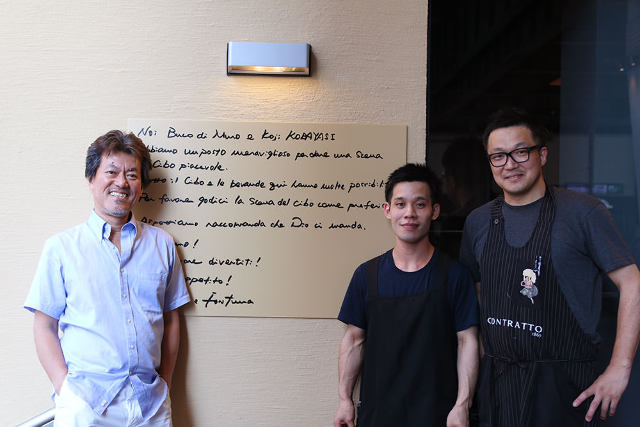 Noi Buco di Muro e Koji KOBAYASI
abbiamo un posto meraviglioso per dare una Scena
Cibo piacevole.
il Cibo e le bevande qui hanno molte possibilit
Per favore godici la Scena del Cibo come prefer
Aspettiamo raccomanda che Dio ci manda.
mo!
re divertiti!
petito!
e Fortuna
CONTRATTO